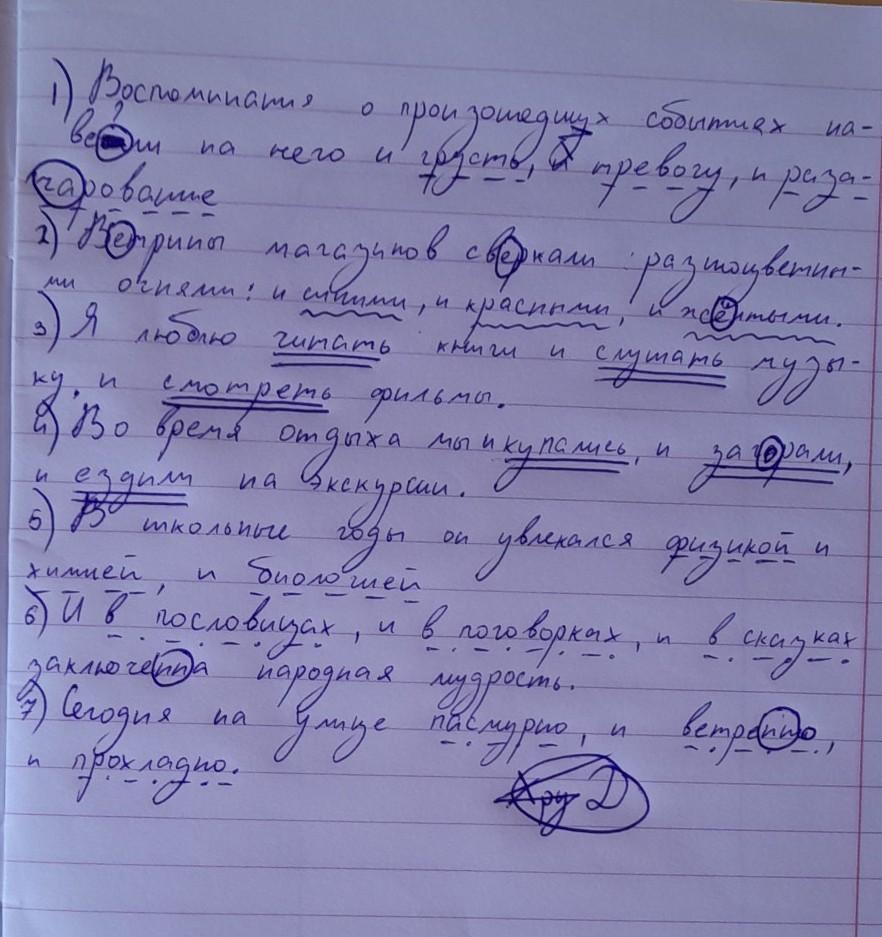 1) Воспоминания о произошедших событиях на-
вели на него и грусть, и тревогу, и раза-
чарование
2) Ветрины магазинов сверкали разноцветны-
ми огнями: и синими, и красными, и жёлтыми.
3) Я люблю читать книги и слушать музы-
ку, и смотреть фильмы.
4) Во время отдыха мы и купались, и загорали,
и ездили на экскурсии.
5) В школьные годы он увлекался физикой и
химией, и биологией
6) И в пословицах, и в поговорках, и в сказках
заключенна народная мудрость.
7) Сегодня на улице пасмурно, и ветренно,
и прохладно.